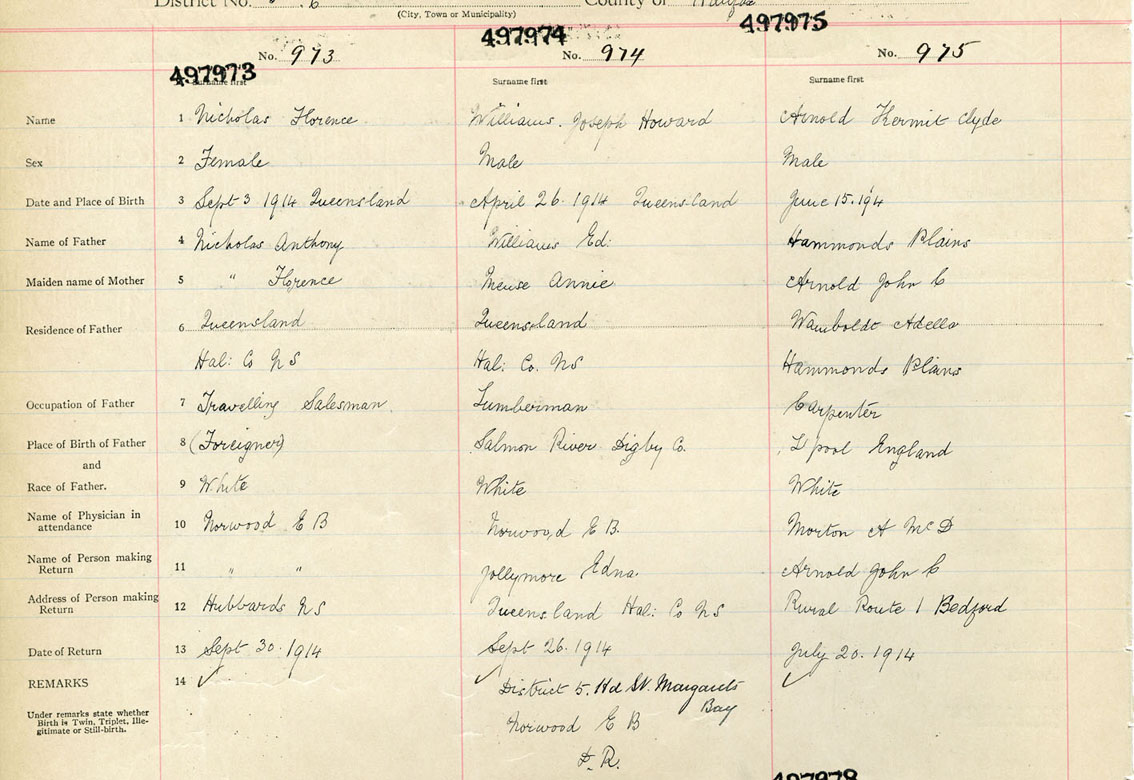 District No. 6 County of Halifax
(City, Town or Municipality)
497973 497974 497975
No. 973 No. 974 No. 975
Surname first Surname first Surname first
Name 1 Nicholas Florence Williams. Joseph Howard Arnold Kermit Clyde
Sex 2 Female Male Male
Date and Place of Birth 3 Sept 3 1914 Queensland April 26. 1914 Queensland June 15. 194
Name of Father 4 Nicholas Anthony Williams Ed: Hammonds Plains
Maiden name of Mother 5 " Florence Meuse Annie Arnold John C
Residence of Father 6 Queensland Queensland Wamboldt Adella
Hal: Co NS Hal: Co. NS Hammonds Plains
Occupation of Father 7 Travelling Salesman. Lumberman Carpenter
Place of Birth of Father 8 (Foreigner) Salmon River Digby Co. L'pool England
and
Race of Father. 9 White White White
Name of Physician in attendance 10 Norwood E B Norwood E B. Morton A McD
Name of Person making Return 11 " " Jollymore Edna. Arnold John C
Address of Person making Return 12 Hubbards NS Queensland Hal: Co NS Rural Route 1 Bedford
Date of Return 13 Sept 30. 1914 Sept 26. 1914 July 20. 1914
REMARKS 14 ✓ ✓ District 5. Hd St. Margarets ✓
Bay
Under remarks state whether
Birth is Twin, Triplet, Ille-
gitimate or Still-birth.
Norwood E B
D. R.
497978